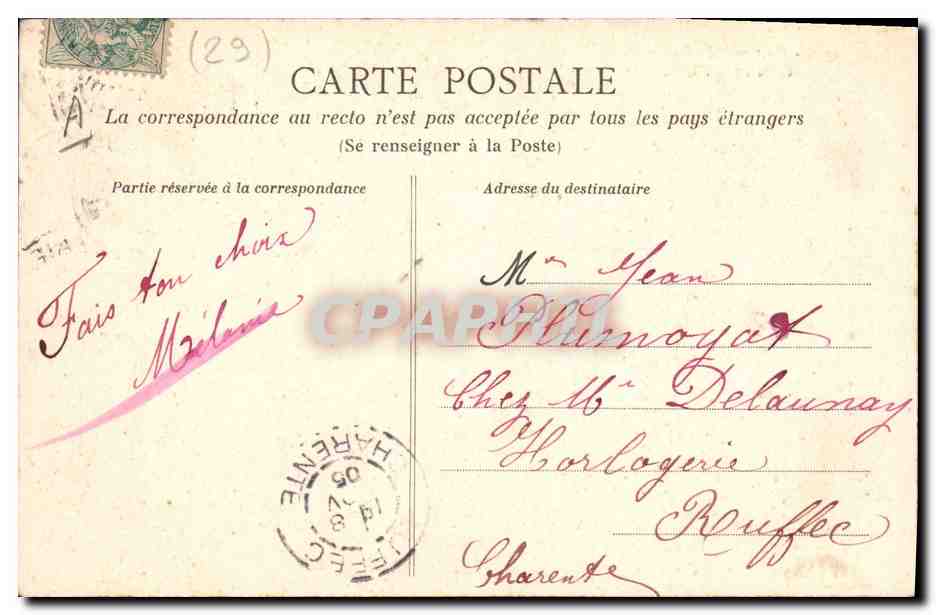 (29)
A
CARTE POSTALE
La correspondance au recto n'est pas acceptée par tous les pays étrangers
(Se renseigner à la Poste)
Partie réservée à la correspondance
Fais ton choix
Mélanie
Adresse du destinataire
Mr Jean
Plumoyat
Chez Mr Delaunay
Horlogerie
Ruffec
Charente
CPAPHIL
RUFFEC
CHARENTE
05